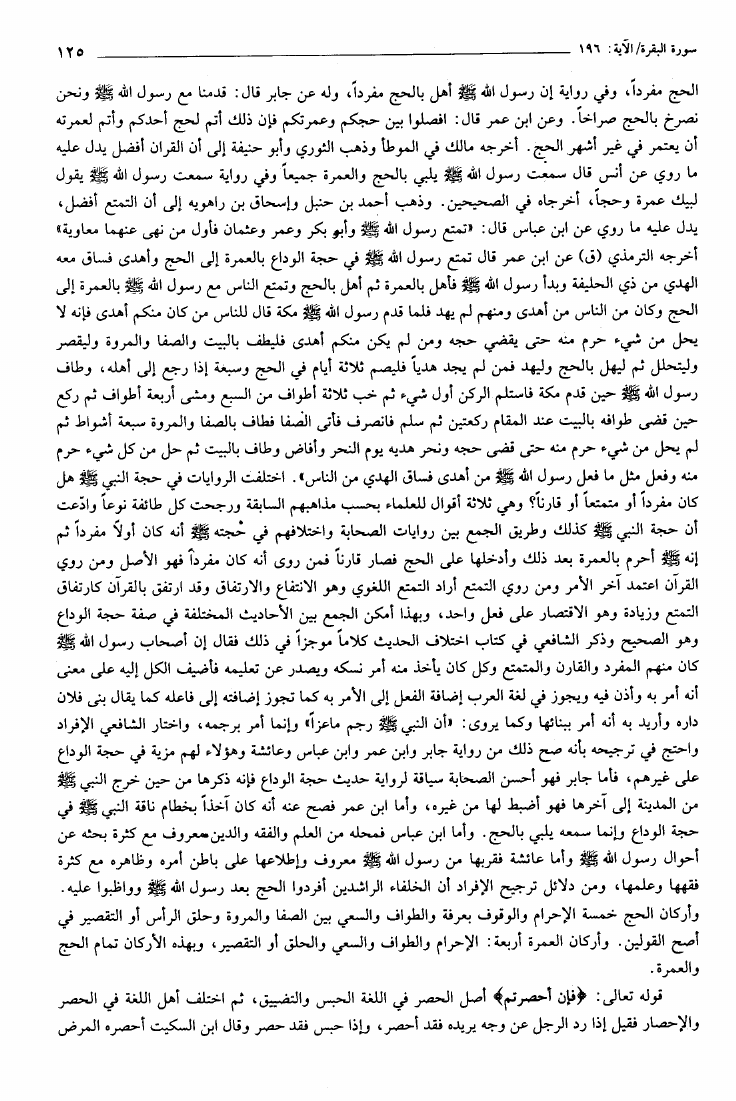 سورة البقرة/ الآية: ١٩٦ ١٢٥
الحج مفرداً، وفي رواية إن رسول الله ﷺ أهل بالحج مفرداً، وله عن جابر قال: قدمنا مع رسول الله ﷺ ونحن
نصرخ بالحج صراخاً. وعن ابن عمر قال: افصلوا بين حجكم وعمرتكم فإن ذلك أتم لحج أحدكم وأتم لعمرته
أن يعتمر في غير أشهر الحج. أخرجه مالك في الموطأ وذهب الثوري وأبو حنيفة إلى أن القران أفضل يدل عليه
ما روي عن أنس قال سمعت رسول الله ﷺ يلبي بالحج والعمرة جميعاً وفي رواية سمعت رسول الله ﷺ يقول
لبيك عمرة وحجاً، أخرجاه في الصحيحين. وذهب أحمد بن حنبل وإسحاق بن راهويه إلى أن التمتع أفضل،
يدل عليه ما روي عن ابن عباس قال: «تمتع رسول الله ﷺ وأبو بكر وعمر وعثمان فأول من نهى عنهما معاوية»
أخرجه الترمذي (ق) عن ابن عمر قال تمتع رسول الله ﷺ في حجة الوداع بالعمرة إلى الحج وأهدى فساق معه
الهدي من ذي الحليفة وبدأ رسول الله ﷺ فأهل بالعمرة ثم أهل بالحج وتمتع الناس مع رسول الله ﷺ بالعمرة إلى
الحج وكان من الناس من أهدى ومنهم لم يهد فلما قدم رسول الله ﷺ مكة قال للناس من كان منكم أهدى فإنه لا
يحل من شيء حرم منه حتى يقضي حجه ومن لم يكن منكم أهدى فليطف بالبيت والصفا والمروة وليقصر
وليتحلل ثم ليهل بالحج وليهد فمن لم يجد هدياً فليصم ثلاثة أيام في الحج وسبعة إذا رجع إلى أهله، وطاف
رسول الله ﷺ حين قدم مكة فاستلم الركن أول شيء ثم خب ثلاثة أطواف من السبع ومشى أربعة أطواف ثم ركع
حين قضى طوافه بالبيت عند المقام ركعتين ثم سلم فانصرف فأتى الصفا فطاف بالصفا والمروة سبعة أشواط ثم
لم يحل من شيء حرم منه حتى قضى حجه ونحر هديه يوم النحر وأفاض وطاف بالبيت ثم حل من كل شيء حرم
منه وفعل مثل ما فعل رسول الله ﷺ من أهدى فساق الهدي من الناس». اختلفت الروايات في حجة النبي ﷺ هل
كان مفرداً أو متمتعاً أو قارناً؟ وهي ثلاثة أقوال للعلماء بحسب مذاهبهم السابقة ورجحت كل طائفة نوعاً وادّعت
أن حجة النبي ﷺ كذلك وطريق الجمع بين روايات الصحابة واختلافهم في حُجته ﷺ أنه كان أولاً مفرداً ثم
إنه ﷺ أحرم بالعمرة بعد ذلك وأدخلها على الحج فصار قارناً فمن روى أنه كان مفرداً فهو الأصل ومن روي
القرآن اعتمد آخر الأمر ومن روي التمتع أراد التمتع اللغوي وهو الانتفاع والارتفاق وقد ارتفق بالقرآن كارتفاق
التمتع وزيادة وهو الاقتصار على فعل واحد، وبهذا أمكن الجمع بين الأحاديث المختلفة في صفة حجة الوداع
وهو الصحيح وذكر الشافعي في كتاب اختلاف الحديث كلاماً موجزاً في ذلك فقال إن أصحاب رسول الله ﷺ
كان منهم المفرد والقارن والمتمتع وكل كان يأخذ منه أمر نسكه ويصدر عن تعليمه فأضيف الكل إليه على معنى
أنه أمر به وأذن فيه ويجوز في لغة العرب إضافة الفعل إلى الأمر به كما تجوز إضافته إلى فاعله كما يقال بنى فلان
داره وأريد به أنه أمر ببنائها وكما يروى: «أن النبي ﷺ رجم ماعزاً» وإنما أمر برجمه، واختار الشافعي الإفراد
واحتج في ترجيحه بأنه صح ذلك من رواية جابر وابن عمر وابن عباس وعائشة وهؤلاء لهم مزية في حجة الوداع
على غيرهم، فأما جابر فهو أحسن الصحابة سياقة لرواية حديث حجة الوداع فإنه ذكرها من حين خرج النبي ﷺ
من المدينة إلى آخرها فهو أضبط لها من غيره، وأما ابن عمر فصح عنه أنه كان آخذاً بخطام ناقة النبي ﷺ في
حجة الوداع وإنما سمعه يلبي بالحج. وأما ابن عباس فمحله من العلم والفقه والدين معروف مع كثرة بحثه عن
أحوال رسول الله ﷺ وأما عائشة فقربها من رسول الله ﷺ معروف وإطلاعها على باطن أمره وظاهره مع كثرة
فقهها وعلمها، ومن دلائل ترجيح الإفراد أن الخلفاء الراشدين أفردوا الحج بعد رسول الله ﷺ وواظبوا عليه.
وأركان الحج خمسة الإحرام والوقوف بعرفة والطواف والسعي بين الصفا والمروة وحلق الرأس أو التقصير في
أصح القولين. وأركان العمرة أربعة: الإحرام والطواف والسعي والحلق أو التقصير، وبهذه الأركان تمام الحج
والعمرة.
قوله تعالى: ﴿فإن أحصرتم﴾ أصل الحصر في اللغة الحبس والتضييق، ثم اختلف أهل اللغة في الحصر
والإحصار فقيل إذا رد الرجل عن وجه يريده فقد أحصر، وإذا حبس فقد حصر وقال ابن السكيت أحصره المرض